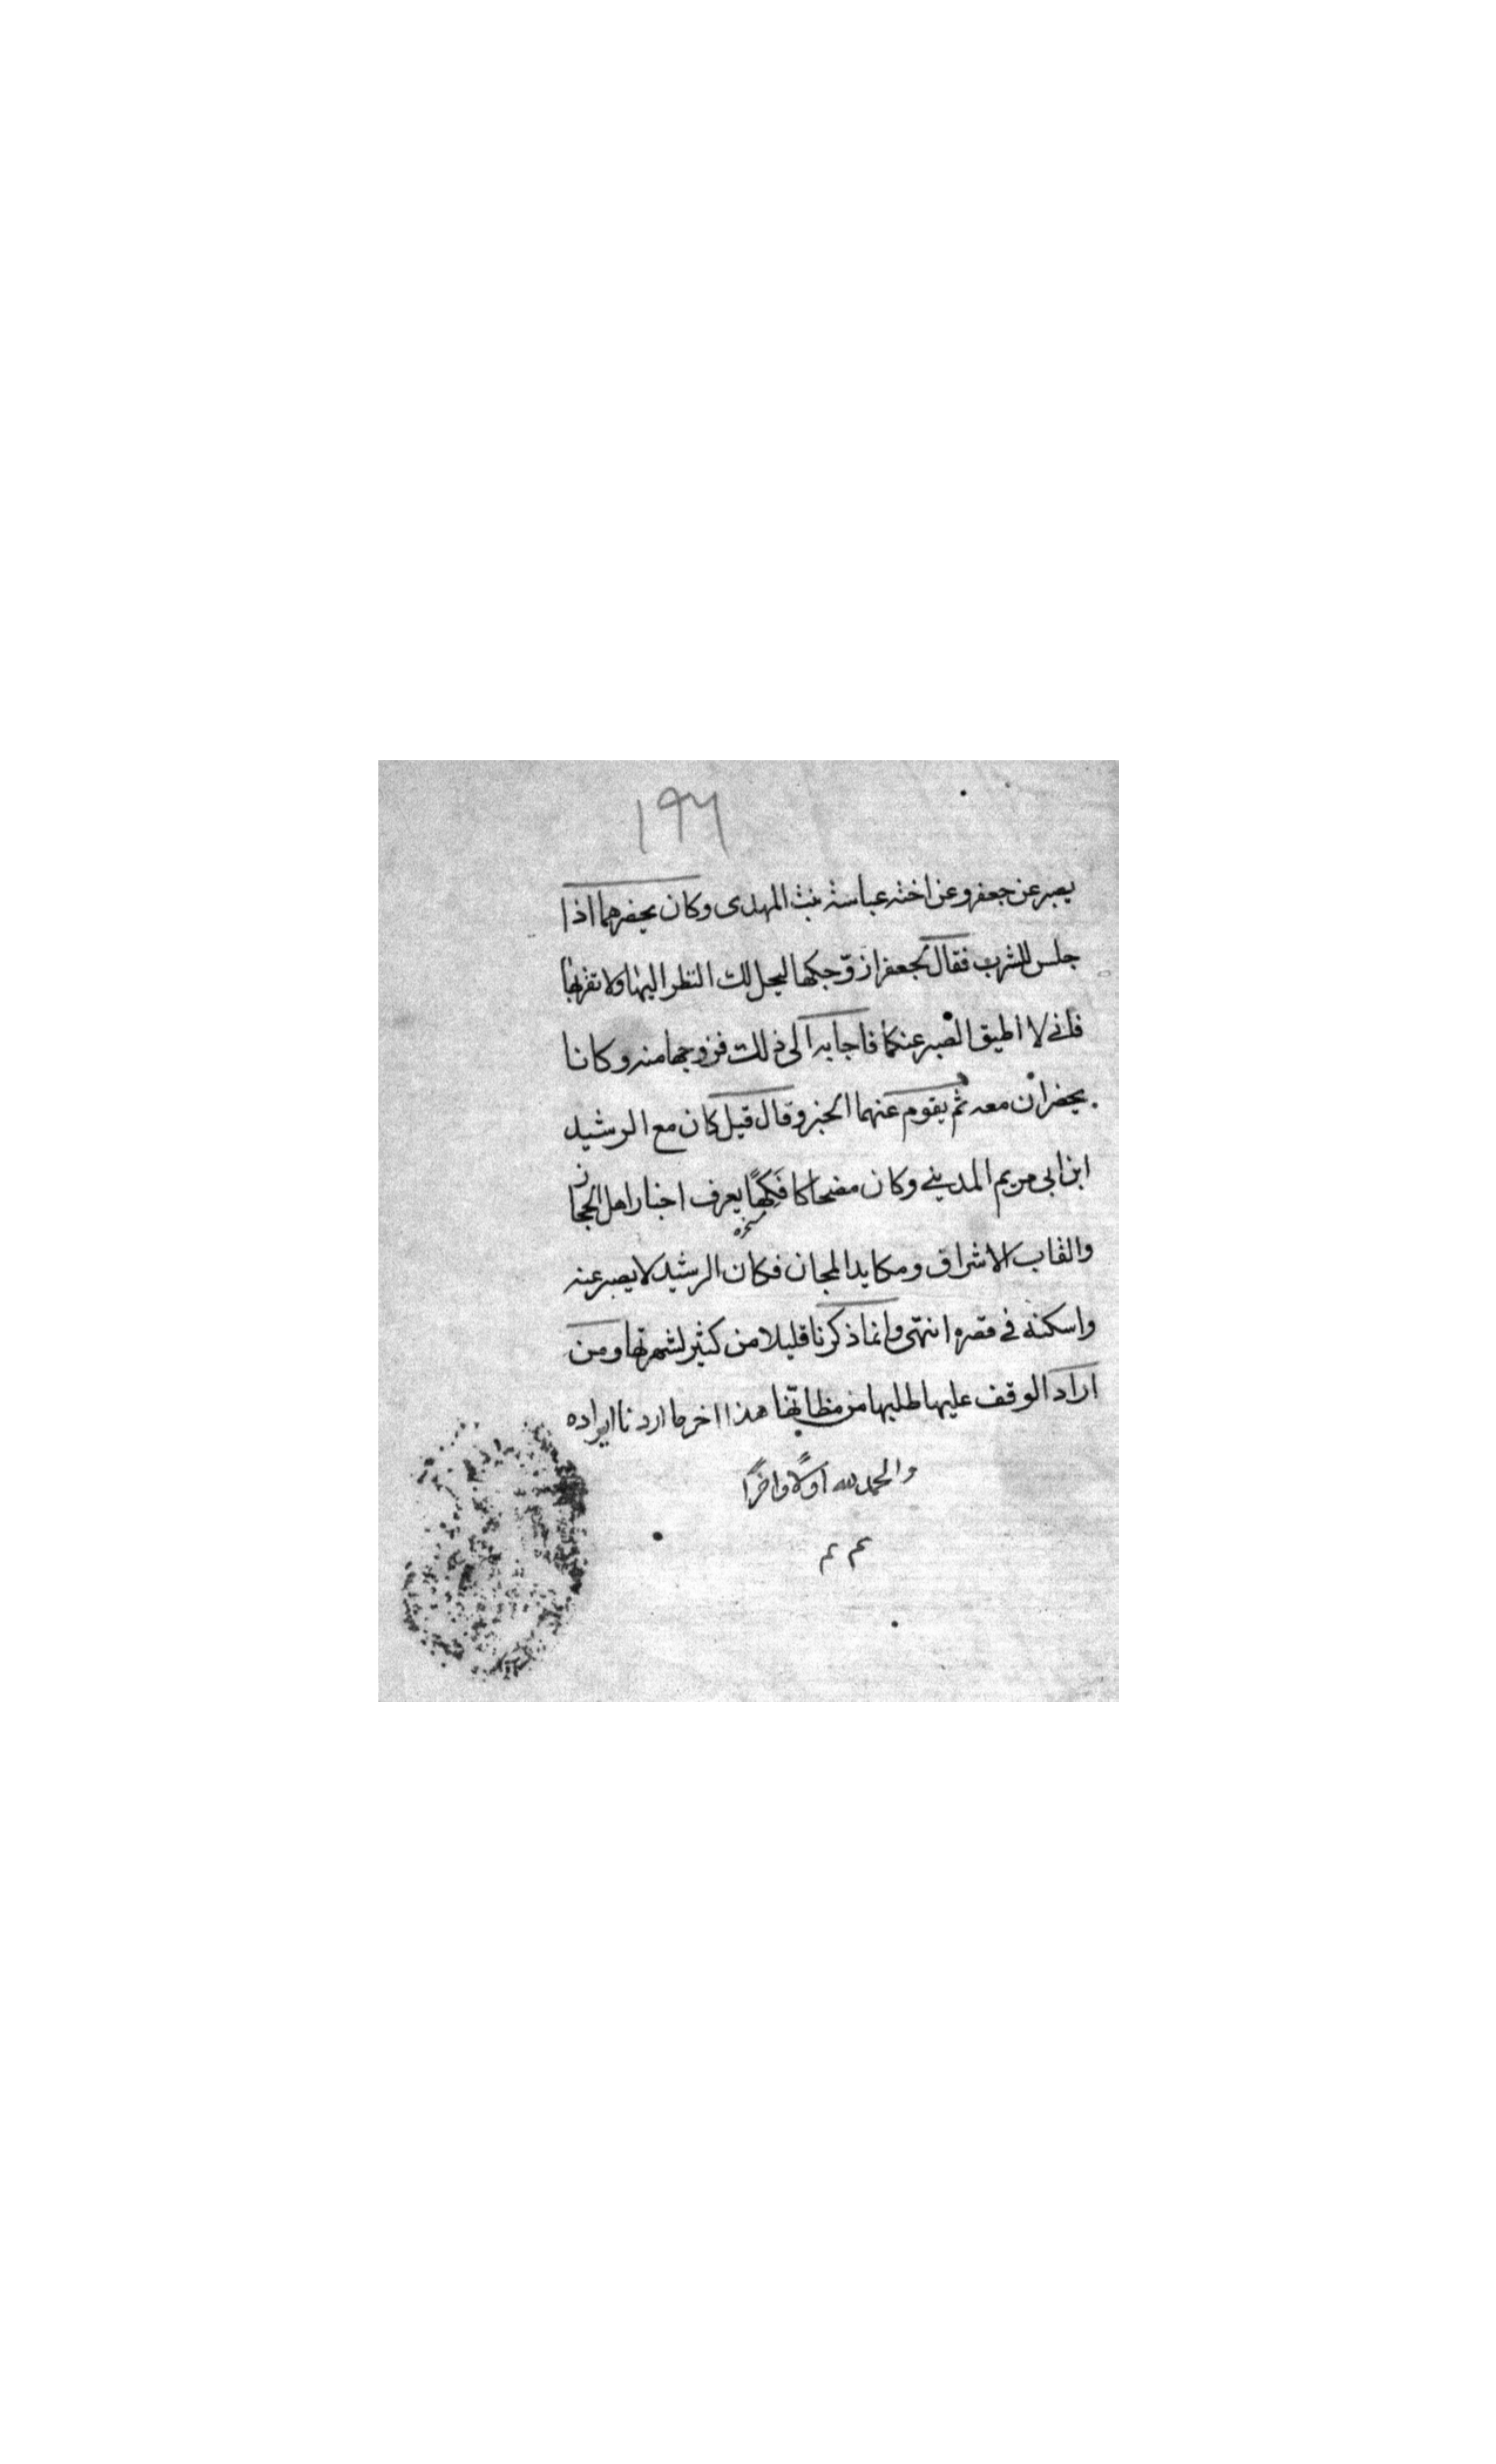 ١٩٦
يصبر عن جعفر وعن اخته عباسة بنت المهدى وكان يحضرهما اذا
جلس للشرب فقال لجعفر ازوّجكها ليحل لك النظر اليها ولا تقربها
فانى لا اطيق الصبر عنكما فاجابه الى ذلك فزوجها منه وكانا
يحضران معه ثم يقوم عنهما الخبر وقال قيل كان مع الرشيد
ابن ابى مريم المدينى وكان مضحاكا فَكِهًا يعرف اخبار اهل الحجاز
والقاب الاشراق ومكايد المجان فكان الرشيد لا يصبر عنه
واسكنه فى قصره انتهى وانما ذكرنا قليلا من كثير لشهرتها ومن
اراد الوقف عليها طلبها من مظانّها هذا اخر ما اردنا ايراده
والحمد لله اوّلًا واخرًا
تم تم